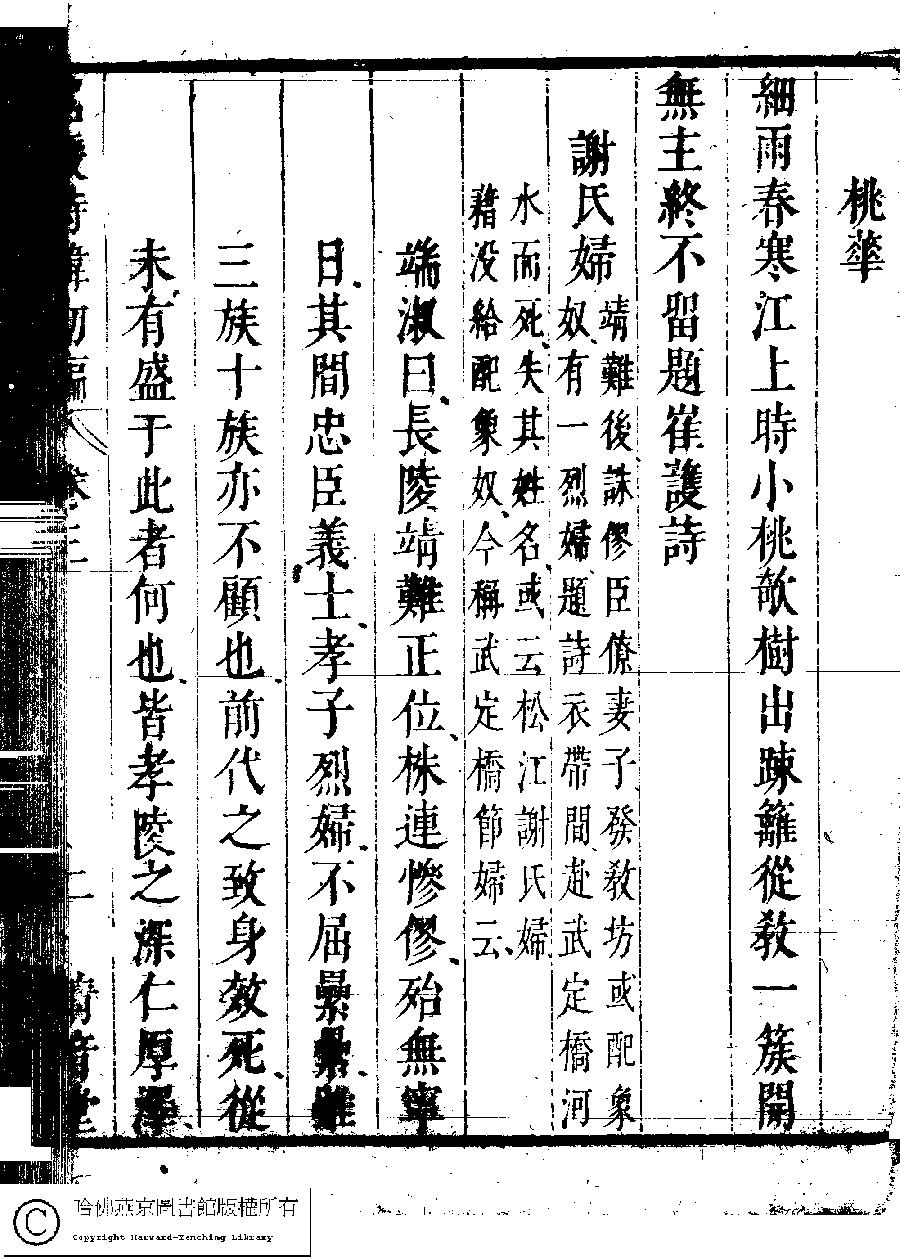 桃華
細雨春寒江上時小桃欹樹出踈籬從敎一簇開
無主終不留題崔護詩
謝氏婦
靖難後誅僇臣僚妻子發敎坊或配象
奴有一烈婦題詩衣帶間赴武定橋河
水而死失其姓名或云松江謝氏婦
藉没給配象奴今稱武定橋節婦云
端淑曰長陵靖難正位株連慘僇殆無寧
日其間忠臣義士孝子烈婦不屈纍纍雖
三族十族亦不顧也前代之致身效死從
未有盛于此者何也皆孝陵之深仁厚澤
名媛詩緯初編 卷三 二 清音堂
哈佛燕京圖書館版權所有
Copyright Harvard-Yenching Library